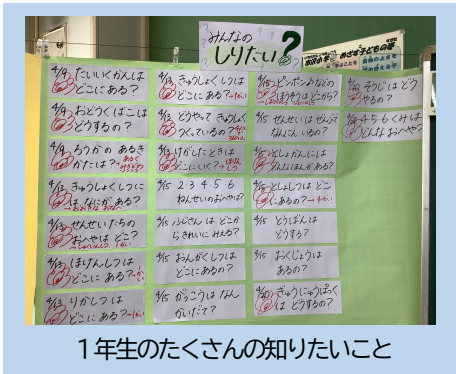 みんなの
しりたい?
4/9 たいいくかんは
どこにある?
4/9 おどうぐばこは
どうするの?
4/9 ろうかの あるき
かたは?→あるく
4/13 きゅうしょくしつに
は なにが ある?
4/13 せんせいたちの
おへやは どこ?
4/13 ほけんしつは
どこに ある?
4/13 りかしつ は
どこに ある?→1かい
4/13 きゅうしょくしつは
どこに ある?→1かい
4/13 どうやって きゅうしょく
つくっているの?
4/13 けがしたときは
どこにいく?
4/15 2・3・4・5・6
ねんせいのおへやは?
4/15 ふじさん は どこか
らきれいに みえる?
4/15 おんがくしつは
どこにあるの?
4/15 がっこうは なん
かいだて?
4/15 ピンポンパンなどの
ほうそうは どこから?
4/15 せんせい は ぜんぶで
なんにんいるの?
4/15 としょかんには
どんなほんが ある?
4/15 としょしつは どこ
にあるの?→1かい
4/15 とうばんは
どうする?
4/15 おくじょうは
あるの?
ぎゅうにゅうぱっく
は どうするの?
そうじは どう
やるの?
4・5・6くみは
どんな おへや?
1年生のたくさんの知りたいこと